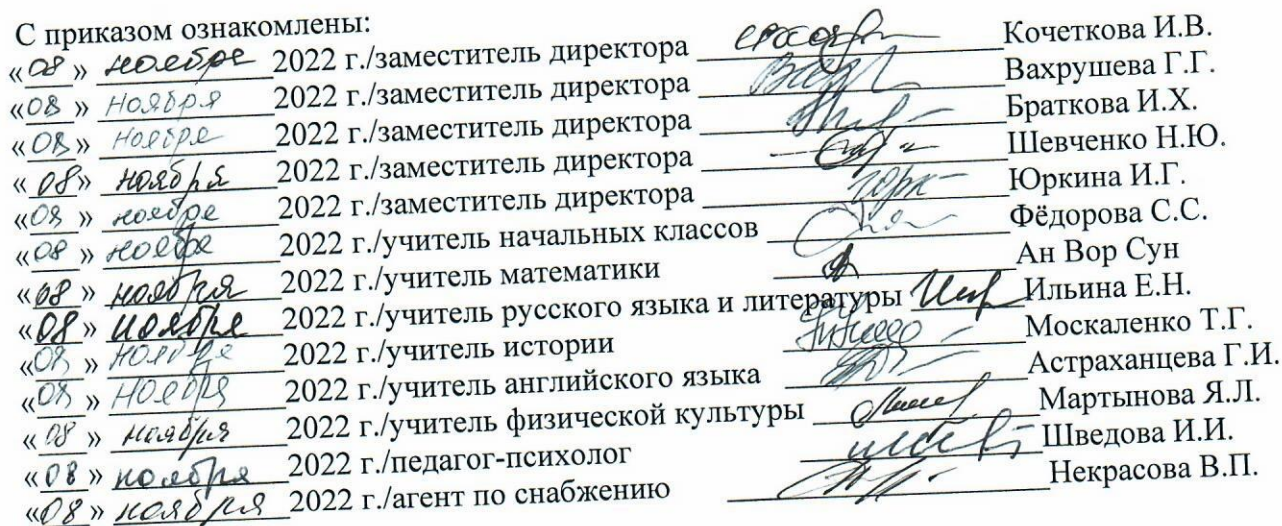 С приказом ознакомлены:
«08» ноября 2022 г./заместитель директора Кочеткова И.В.
«08» ноября 2022 г./заместитель директора Вахрушева Г.Г.
«08» ноября 2022 г./заместитель директора Браткова И.Х.
«08» ноября 2022 г./заместитель директора Шевченко Н.Ю.
«08» ноября 2022 г./заместитель директора Юркина И.Г.
«08» ноября 2022 г./учитель начальных классов Фёдорова С.С.
«08» ноября 2022 г./учитель математики Ан Вор Сун
«08» ноября 2022 г./учитель русского языка и литературы Ильина Е.Н.
«08» ноября 2022 г./учитель истории Москаленко Т.Г.
«08» ноября 2022 г./учитель английского языка Астраханцева Г.И.
«08» ноября 2022 г./учитель физической культуры Мартынова Я.Л.
«08» ноября 2022 г./педагог-психолог Шведова И.И.
«08» ноября 2022 г./агент по снабжению Некрасова В.П.